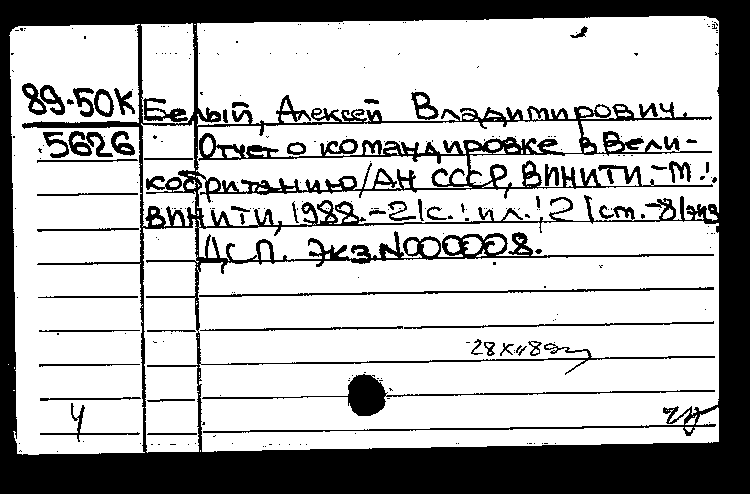 89-50К Белый, Алексей Владимирович.
5626 Отчет о командировке в Вели-
кобританию/АН СССР, ВИНИТИ.-М.:
ВИНИТИ, 1988.-21с.: ил.; 21 ст.-8
ДСП. Экз.N000008.
28 X
4